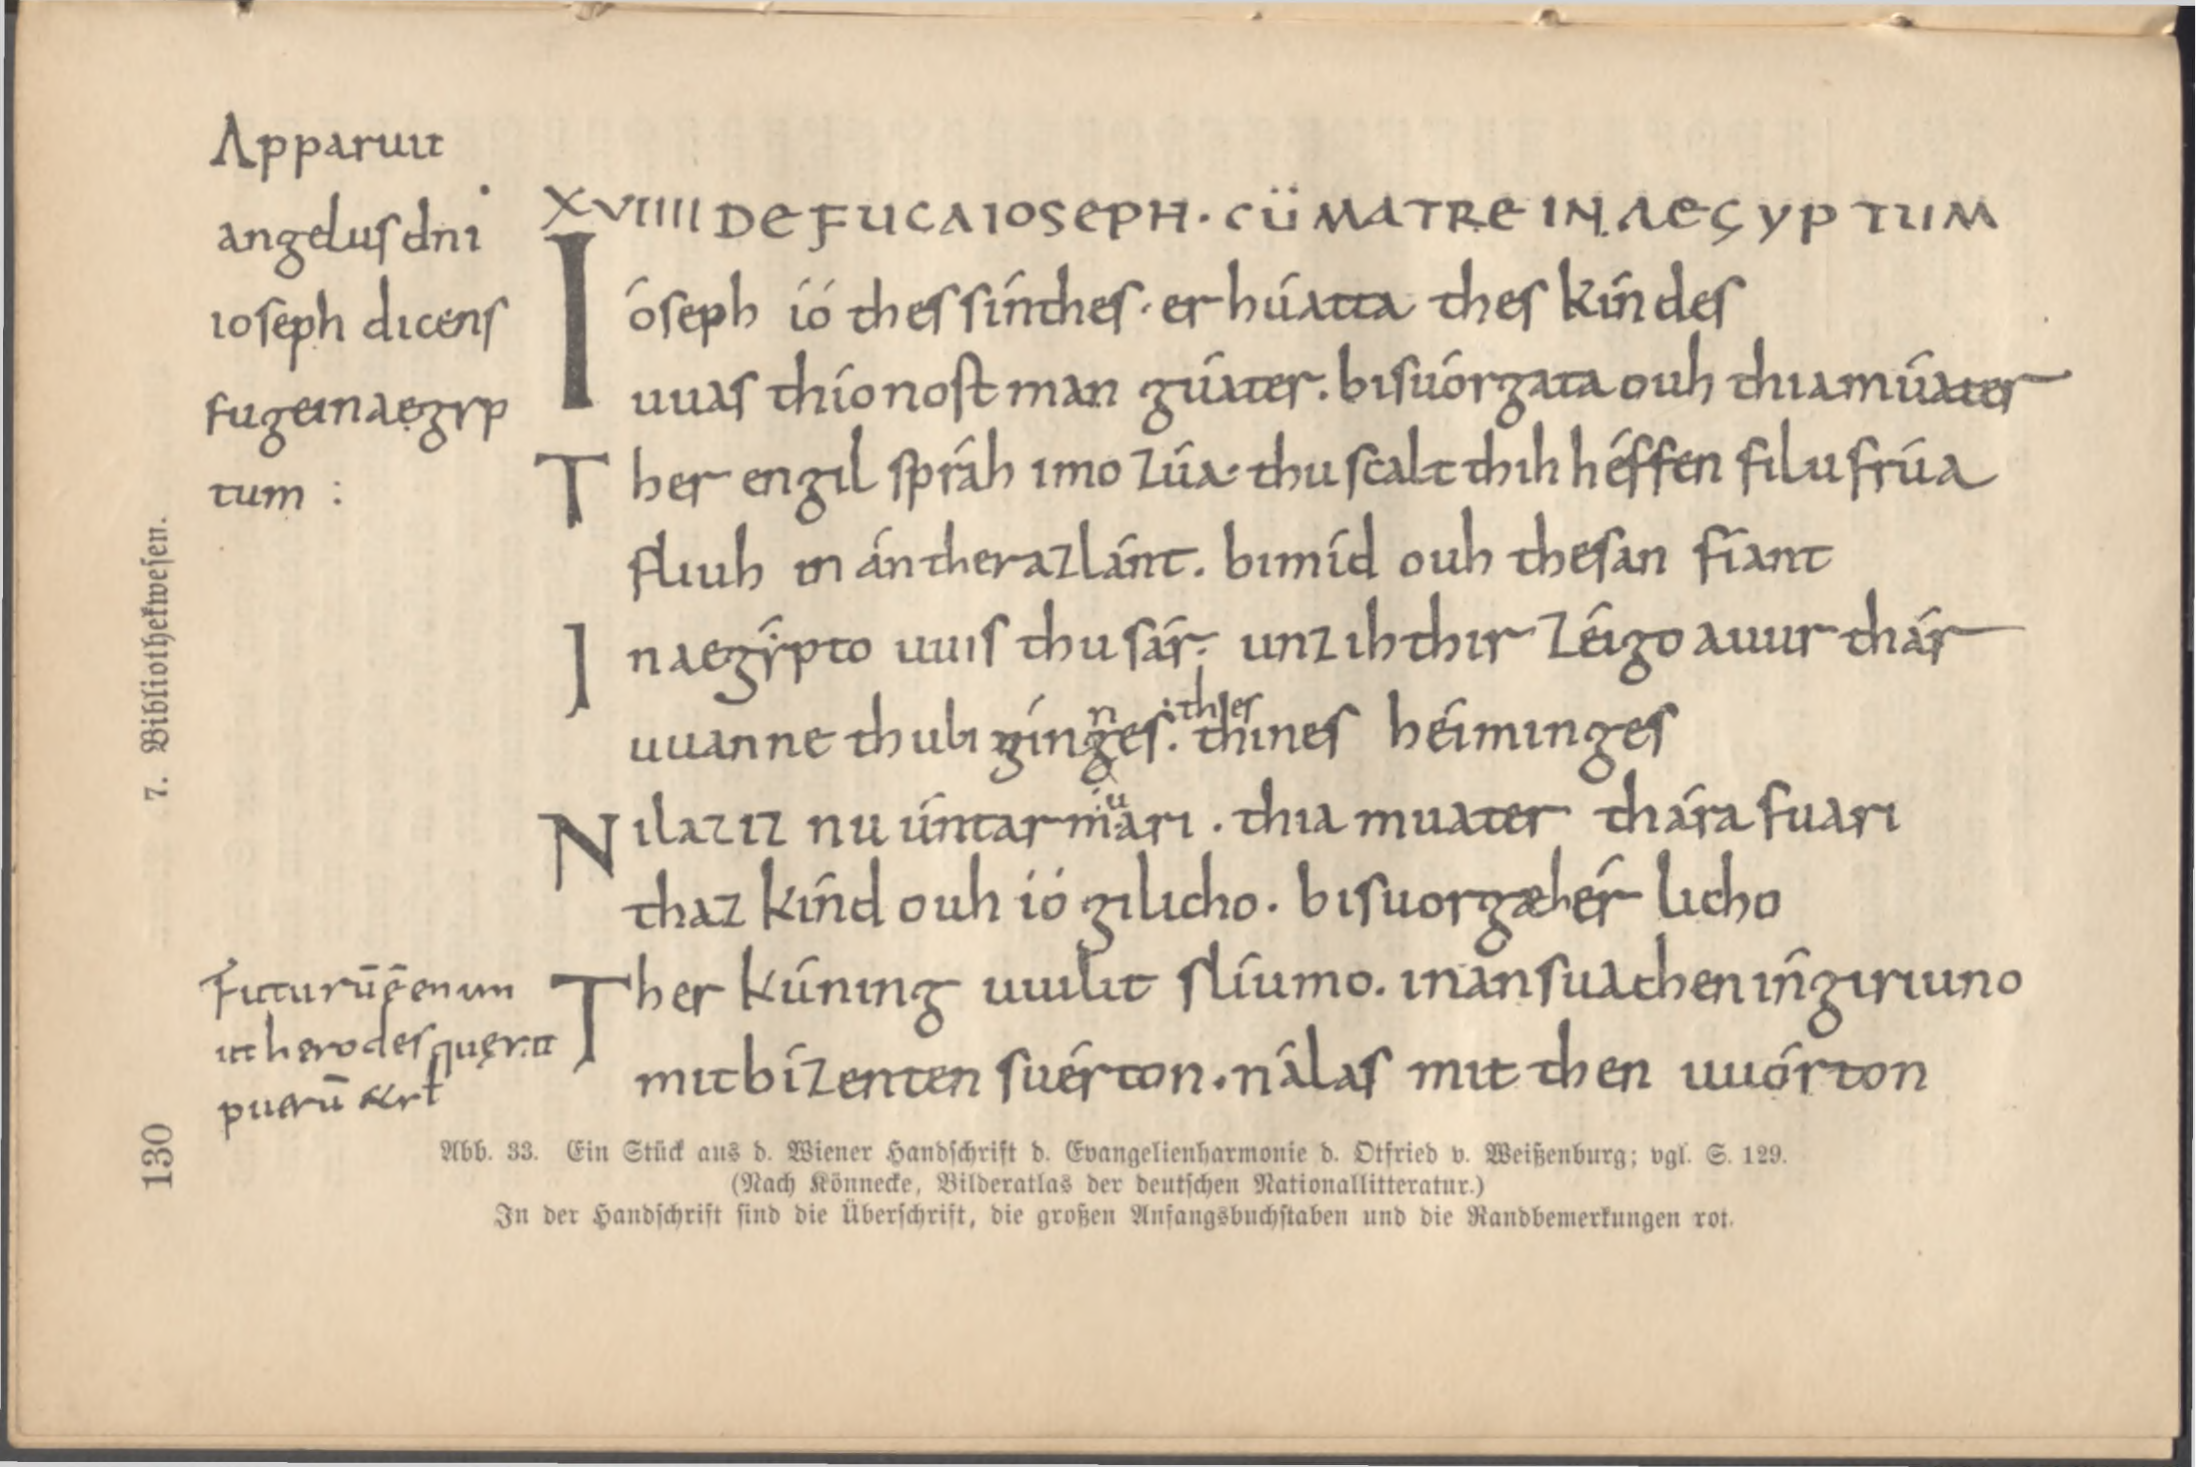 7. Bibliothekwesen.
130
Apparuit
angelus dni
ioseph dicens
fuge in aegyp
tum :
XVIIII DE FUGA IOSEPH · CŪ MATRE IN AEGYPTUM
Ióseph ió thes sínthes · er húatta thes kíndes
uuas thíonost man gúater. bisuórgata ouh thia múater
Ther engil spráh imo zúa · thu scalt thih héffen filu frúa
fliuh in ántheraz lánt. bimíd ouh thesan fíant
In aegýpto uuis thu sár · unz ih thir zéigo auur thár
uuanne thu bigínnes · thes thínes héiminges
Ni laz iz nu úntarmuari · thia muater thára fuari
thaz kínd ouh ió gilicho. bisuorgæ hérlicho
Ther kúning uuilit slíumo. inan suachen in giriuno
mit bízenten suérton. nálas mit then uuórton
Futurū ē enim
ut herodes querat
puerū &rt
Abb. 33. Ein Stück aus d. Wiener Handschrift d. Evangelienharmonie d. Otfried v. Weißenburg; vgl. S. 129.
(Nach Könnecke, Bilderatlas der deutschen Nationallitteratur.)
In der Handschrift sind die Überschrift, die großen Anfangsbuchstaben und die Randbemerkungen rot.